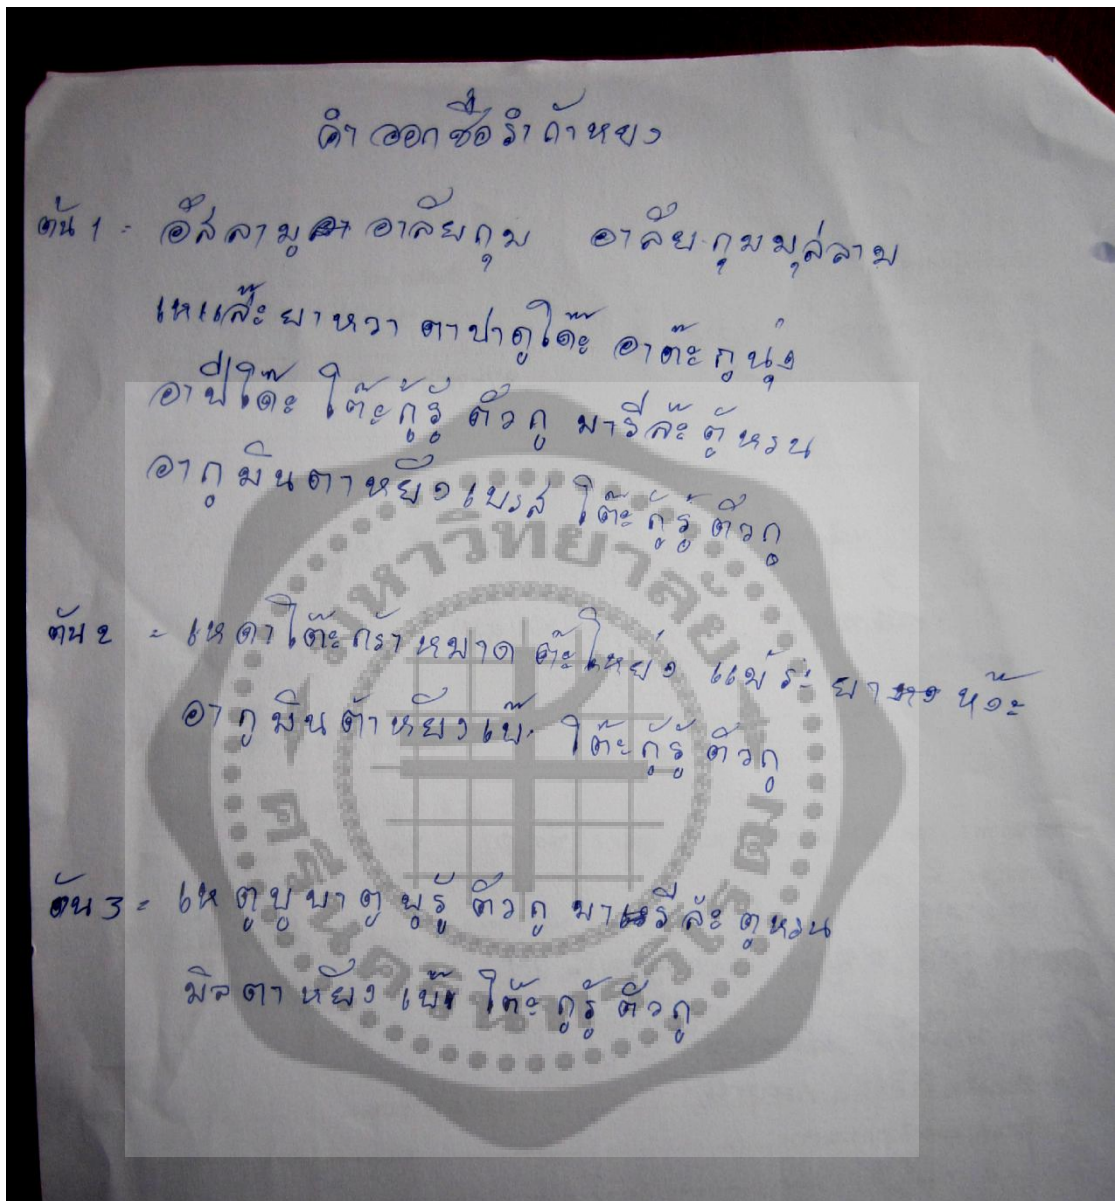 คำออกชื่อรำถ้าหยง
ต้น 1 = อัสลามู อาลัยกุม อาลัยกุมมุสลาม
เหแส๊ะยาหวา ตาปาดูโต๊ะ อาต๊ะกูนุ่ง
อาปีโต๊ะ โต๊ะกู้รู้ ตัวกู มารีล๊ะตู้หรน
อากูมินตาหยัง โต๊ะกู้รู้ตัวกู
ต้น 2 = เหดาโต๊ะกร้าหมาด
อากูมินต้าหยังเบ๊ะ โต๊ะกู้รู้ ตัวกู
ต้น 3 = เหตูบูบาตูบูรู้ ตัวกู มารีล๊ะตูหรน
มินตาหยัง โต๊ะกูรู้ตัวกู
มหาวิทยาลัย
ศรีนครินทรวิโรฒ